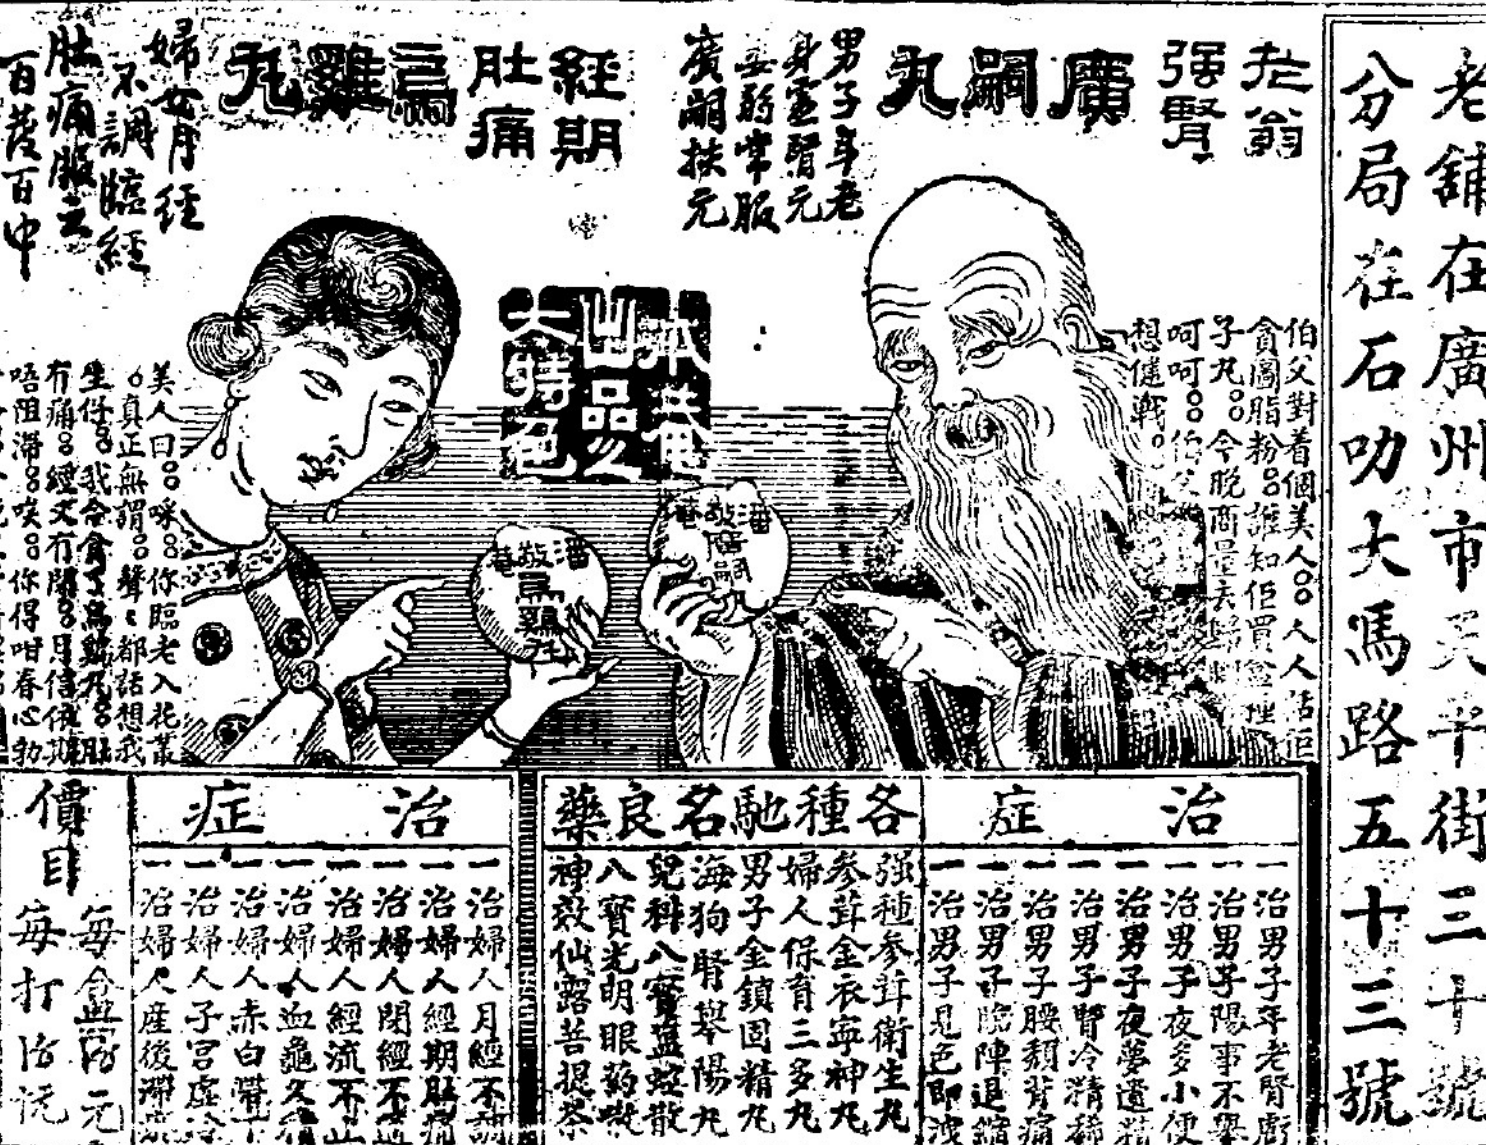 老舖在廣州市天平街三十號
分局在石叻大馬路五十三號
老翁
强腎
廣嗣丸
男子年老
身虛腎元
妥弱常服
廣嗣扶元
經期
肚痛
烏雞丸
婦女月經
不調臨經
肚痛服之
百發百中
本葊
出品之
大特色
潘
敬
葊
廣嗣
潘
敬
葊
烏鷄丸
伯父對着個美人。。人人話佢
貪圖脂粉。。誰知佢買盒
子丸。。今晚商量去歸
呵呵。。伯父
想健戰。
美人曰。。啋。。你臨老入花叢
。真正無謂。。聲聲都話想我
生仔。。我今食了烏鷄丸。。肚
冇痛。。經又冇閉。。月信依期
唔阻滯。。唉。。你得咁春心動
治症
一治男子年老腎虧
一治男子陽事不舉
一治男子夜多小便
一治男子夜夢遺精
一治男子腎冷精稀
一治男子腰頹背痛
一治男子臨陣退縮
一治男子見色即洩
各種馳名良藥
强種參茸衛生丸
參茸金衣寧神丸
婦人保育三多丸
男子金鎖固精丸
海狗腎舉陽丸
兒科八寶鹽蛇散
八寶光明眼藥散
神效仙露菩提茶
治症
一治婦人月經不調
一治婦人經期肚痛
一治婦人閉經不通
一治婦人經流不止
一治婦人血龜久積
一治婦人赤白帶下
一治婦人子宮虛冷
一治婦人産後滯
價目
每盒 元
每打 元